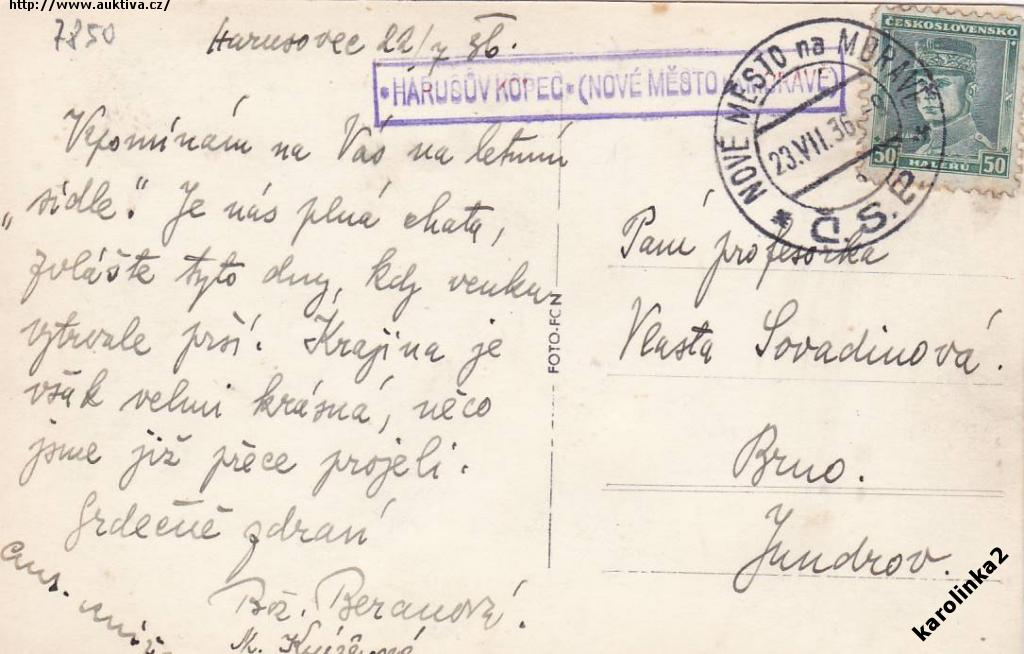 http://www.auktiva.cz/
7850
Harusovec 22/7 36.
* HARUSŮV KOPEC * (NOVÉ MĚSTO MORAVĚ)
NOVÉ MĚSTO na MORAVĚ
23.VII.36
* Č.S.R *
ČESKOSLOVENSKO
50 HALÉŘŮ 50
Vzpomínám na Vás na letním
„sídle." Je nás plná chata,
zvláště tyto dny, kdy venku
vytrvale prší. Krajina je
však velmi krásná, něco
jsme již přece projeli.
Srdečně zdraví
Bož. Beranová.
M.
FOTO-FON
Paní profesorka
Vlasta Sovadinová.
Brno.
Jundrov.
karolinka2